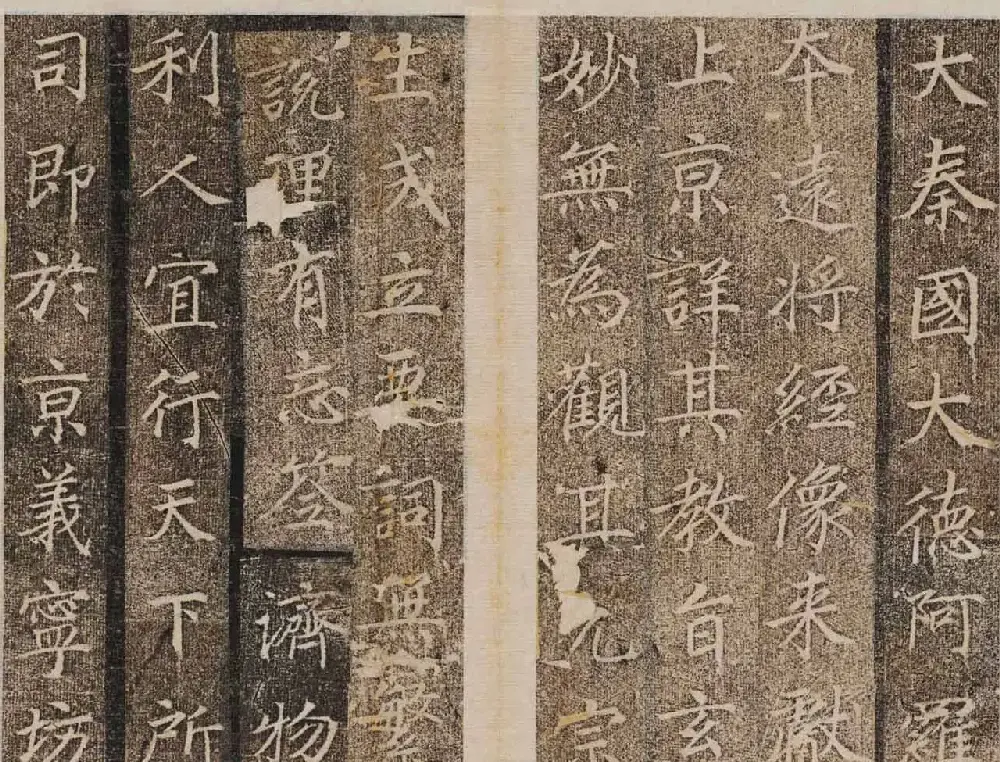 大秦國大德阿羅
夲遠將經像来獻
上京詳其教旨玄
妙無為觀其元宗
生成立要詞無繁
說理有忘筌濟物
利人宜行天下所
司即於京義寧坊